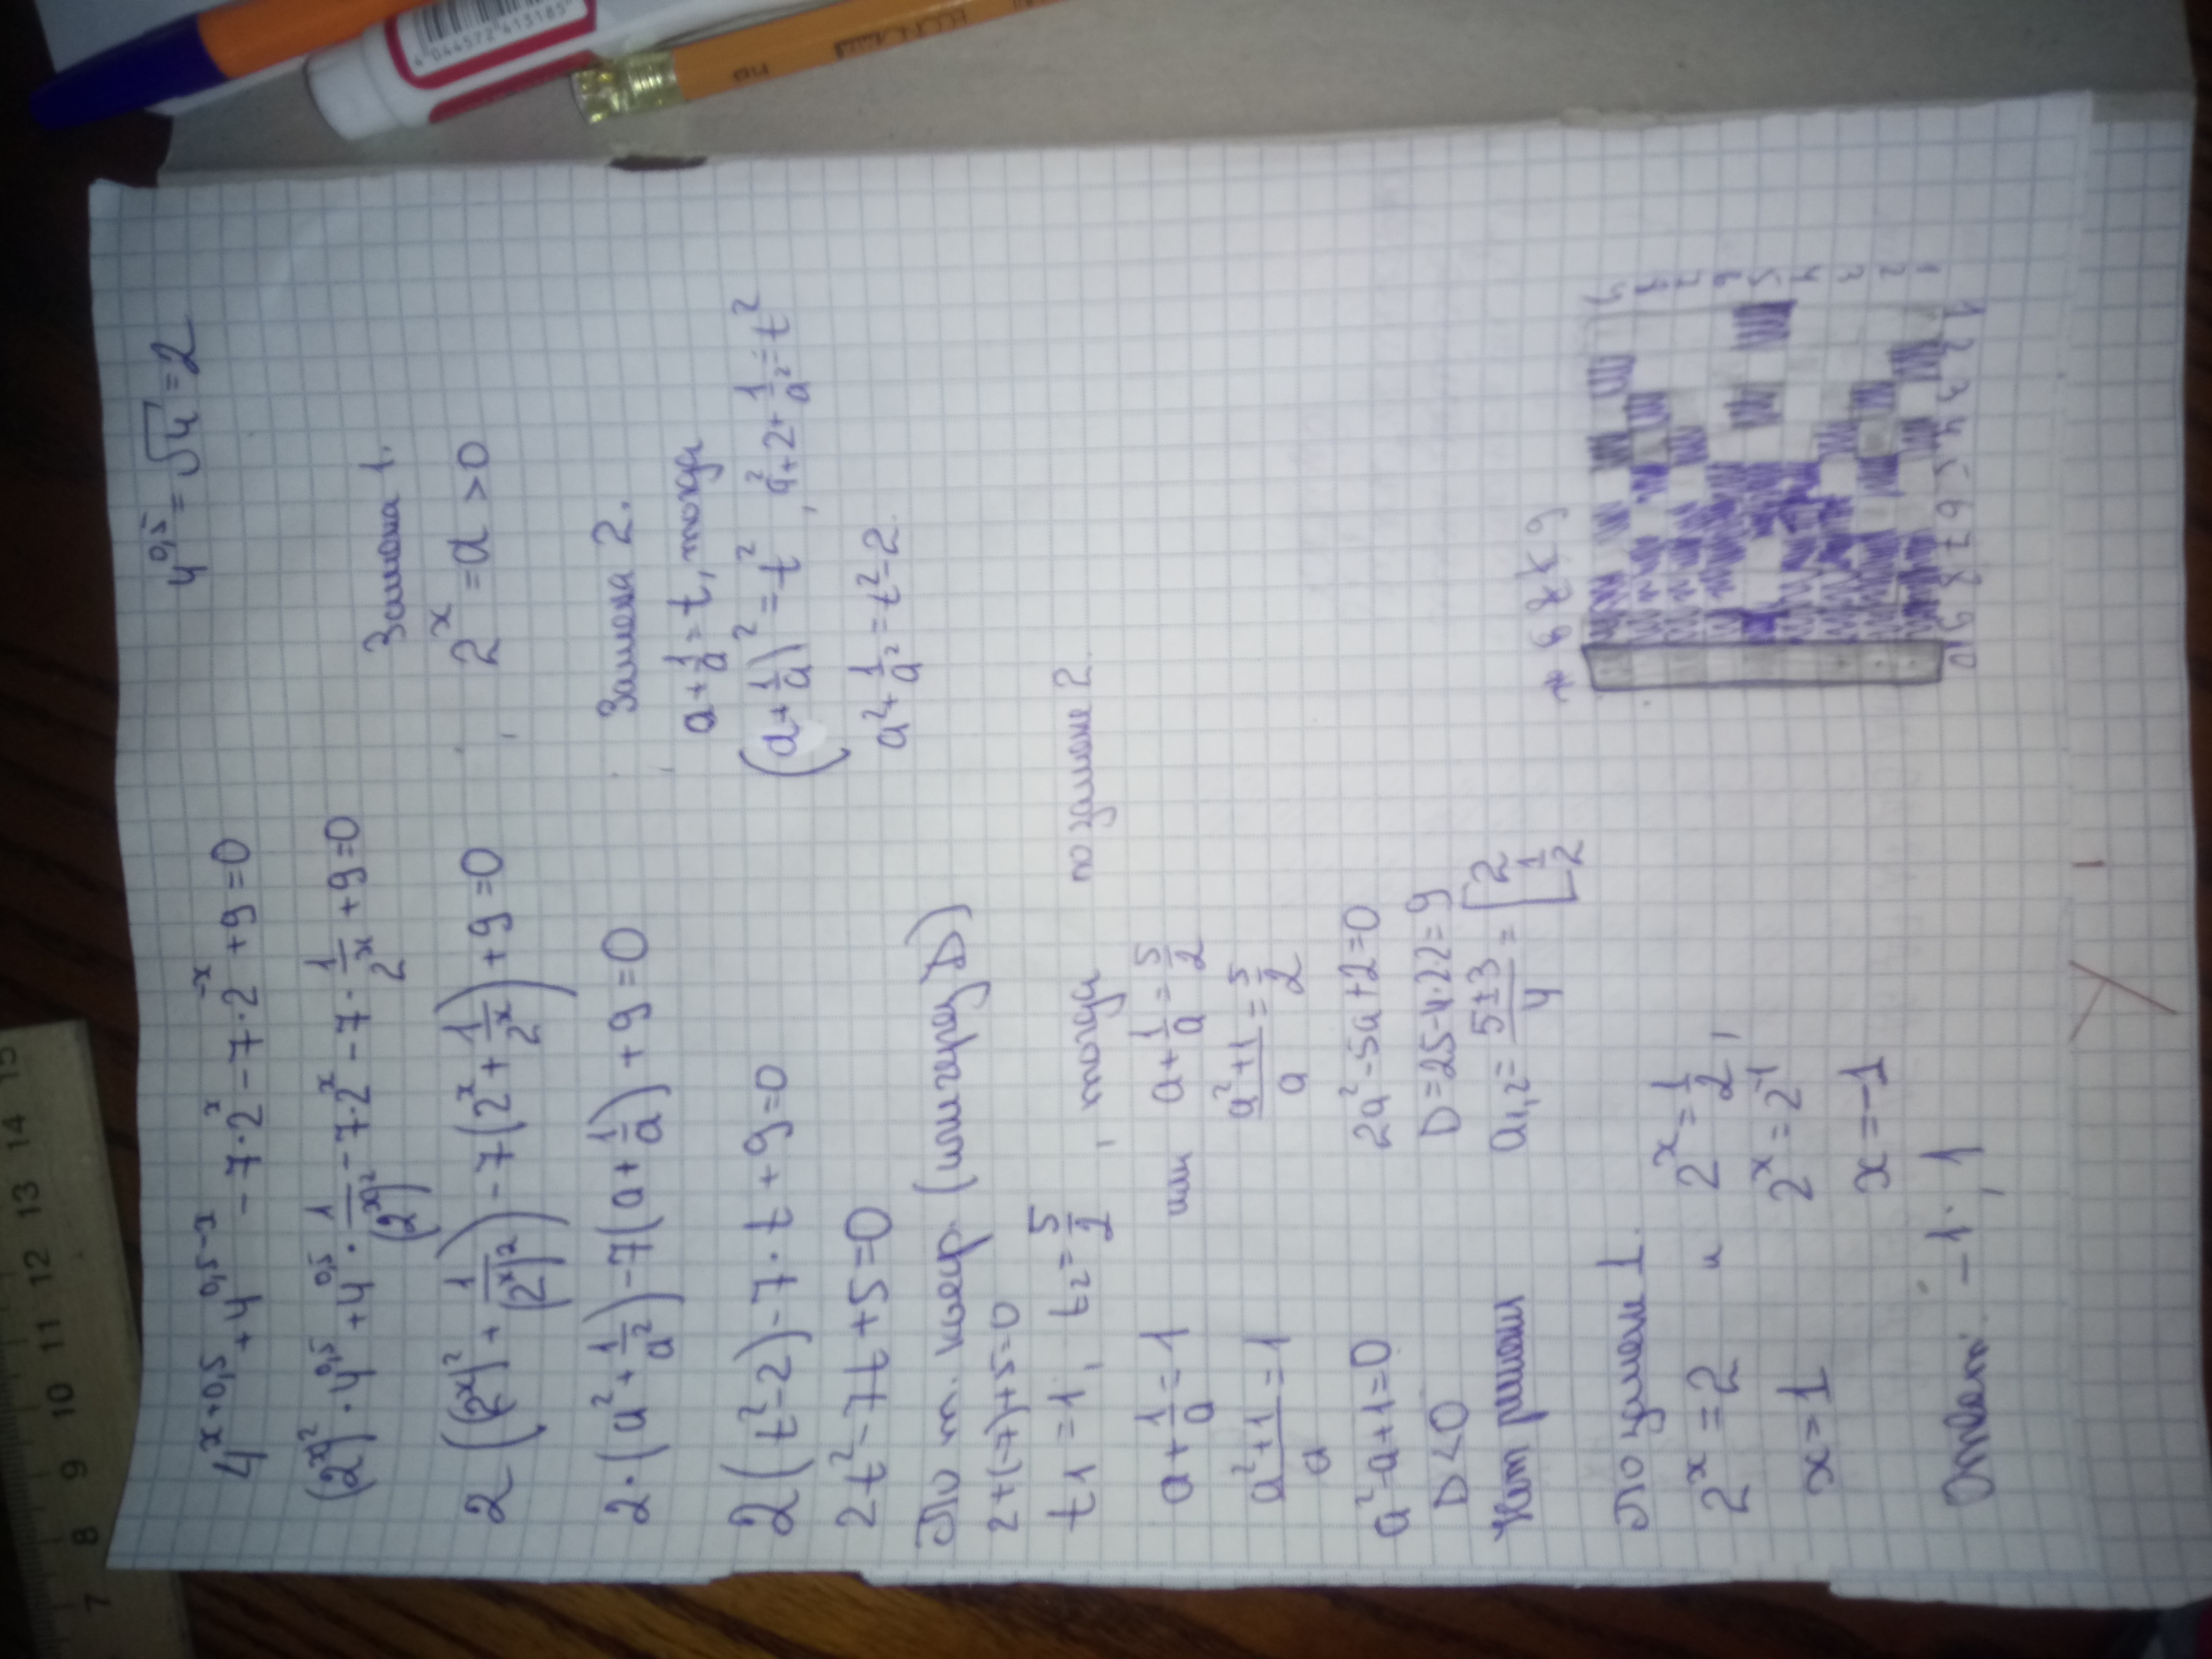 4^{x+0,5} + 4^{0,5-x} - 7·2^x - 7·2^{-x} + 9 = 0
4^{0,5} = √4 = 2
(2^x)^2 · 4^{0,5} + 4^{0,5} · 1/(2^x)^2 - 7·2^x - 7 · 1/2^x + 9 = 0
Замена 1.
2((2^x)^2 + 1/(2^x)^2) - 7(2^x + 1/2^x) + 9 = 0
2^x = a > 0
2·(a^2 + 1/a^2) - 7(a + 1/a) + 9 = 0
Замена 2.
a + 1/a = t, тогда
2(t^2 - 2) - 7·t + 9 = 0
(a + 1/a)^2 = t^2, a^2 + 2 + 1/a^2 = t^2
2t^2 - 7t + 5 = 0
a^2 + 1/a^2 = t^2 - 2
По т. коэф. (
D)
2 + (-7) + 5 = 0
t1 = 1, t2 = 5/2, тогда по замене 2.
a + 1/a = 1 или a + 1/a = 5/2
(a^2 + 1)/a = 1
(a^2 + 1)/a = 5/2
a^2 - a + 1 = 0
2a^2 - 5a + 2 = 0
D < 0
D = 25 - 4·2·2 = 9
Нет решений
a1,2 = (5 ± 3)/4 = [2
1/2
По замене 1.
2^x = 2 и 2^x = 1/2,
x = 1
2^x = 2^{-1}
x = -1
Ответ: -1; 1
7 8 9 10 11 12 13 14 15
4 044572 413185
1 2 3 4 5 6 7 8 9 10
1 2 3 4 5 6 7